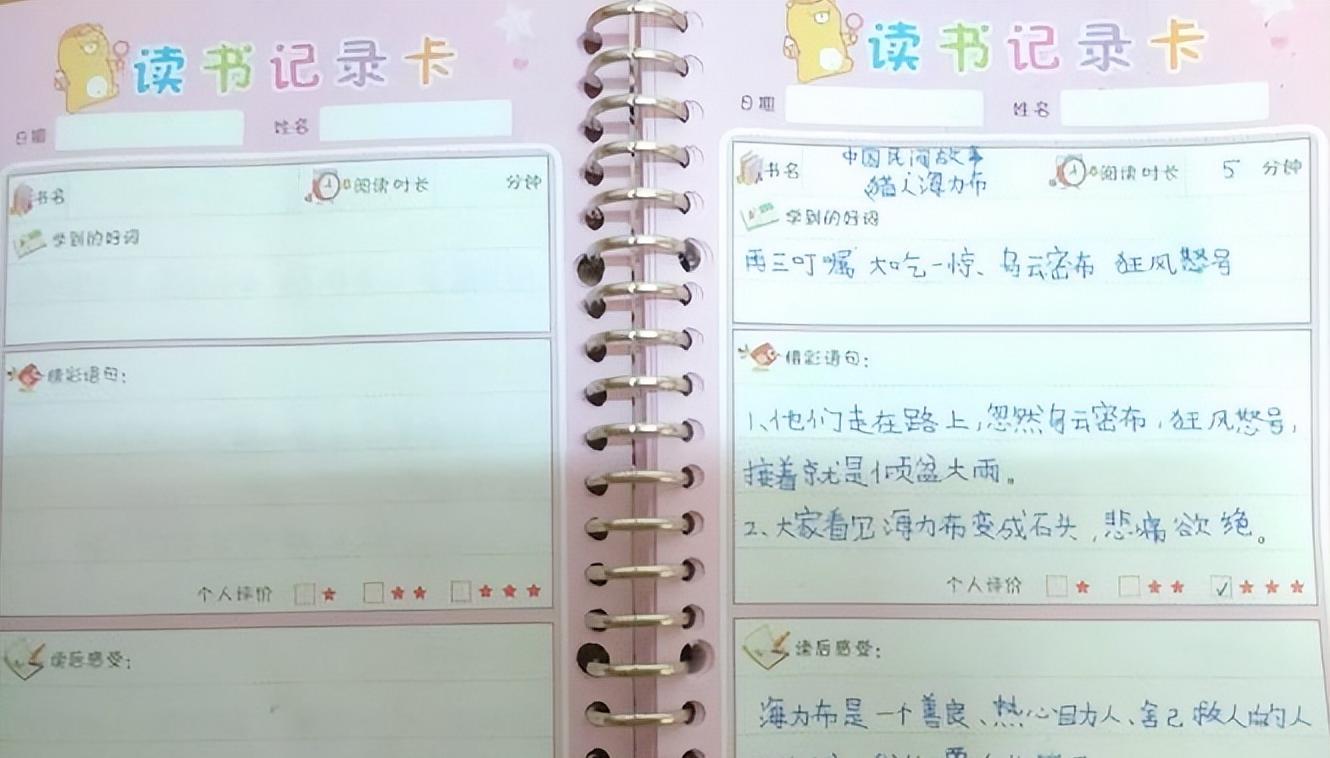 读书记录卡
日期 姓名
书名 阅读时长 分钟
学到的好词
精彩语句：
个人评价
读后感受：
读书记录卡
日期 姓名
书名 中国民间故事 阅读时长 5 分钟
猎人海力布
学到的好词
再三叮嘱 大吃一惊、乌云密布 狂风怒号
精彩语句：
1、他们走在路上，忽然乌云密布，狂风怒号，
接着就是倾盆大雨。
2、大家看见海力布变成石头，悲痛欲绝。
个人评价 ✓
读后感受：
海力布是一个善良、热心助人、舍己救人的人